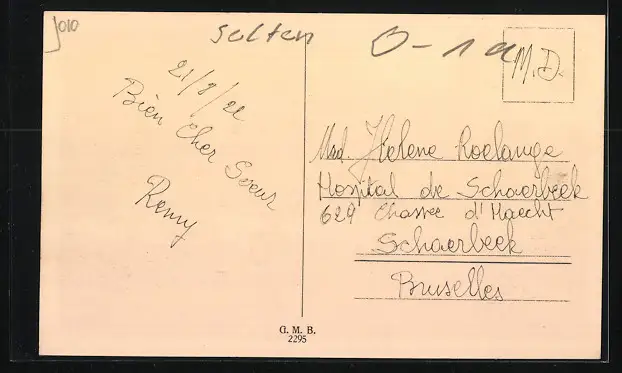 J010
selten
0-1a
M.D.
21/9/22
Bien Cher Soeur
Remy
Mad. Helene Roelange
Hospital de Schaerbeek
629 Chassee d'Haecht
Schaerbeek
Bruselles
G. M. B.
2295